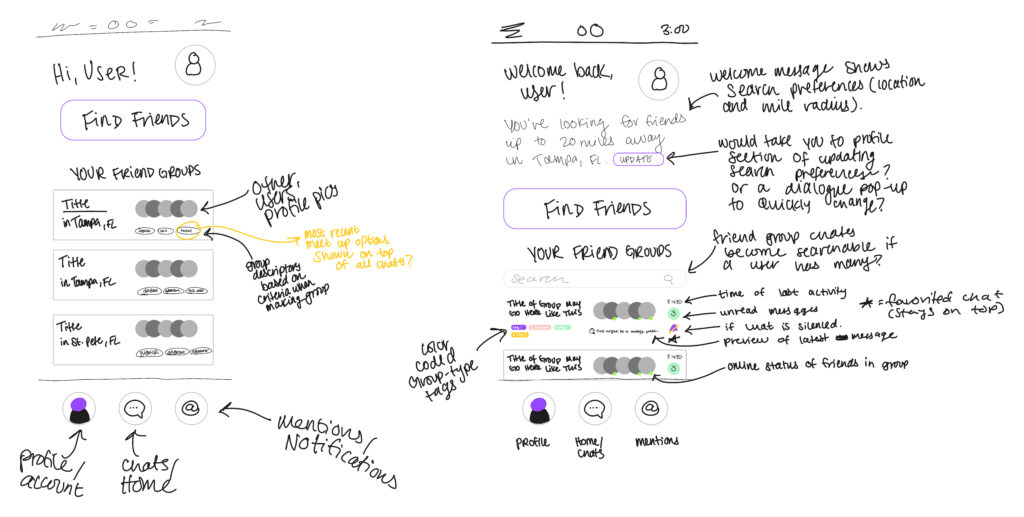 Hi, User!
Find Friends
YOUR FRIEND GROUPS
Title
in Tampa, FL
Title
in Tampa, FL
Title
in St. Pete, FL
other
users
profile pics
most recent
meet up options
shown on top
of all chats?
group
descriptors
based on
criteria when
making group
@
profile/
account
chats/
Home
Mentions/
Notifications
3:00
Welcome back,
user!
You're looking for friends
up to 20 miles away
in Tampa, FL. UPDATE
Find Friends
YOUR FRIEND GROUPS
Search
Title of Group May
Go Here Like This
2:430
3
Title of Group May
Go Here Like This
2:430
3
@
PROFILE
Home/
Chats
mentions
welcome message shows
search preferences (location
and mile radius).
would take you to profile
section of updating
search preferences?
or a dialogue pop-up
to quickly change?
friend group chats
become searchable if
a user has many?
time of last activity
unread messages
if chat is silenced.
preview of latest message
online status of friends in group
* = favorited chat
(stays on top)
color
coded
group-type
tags